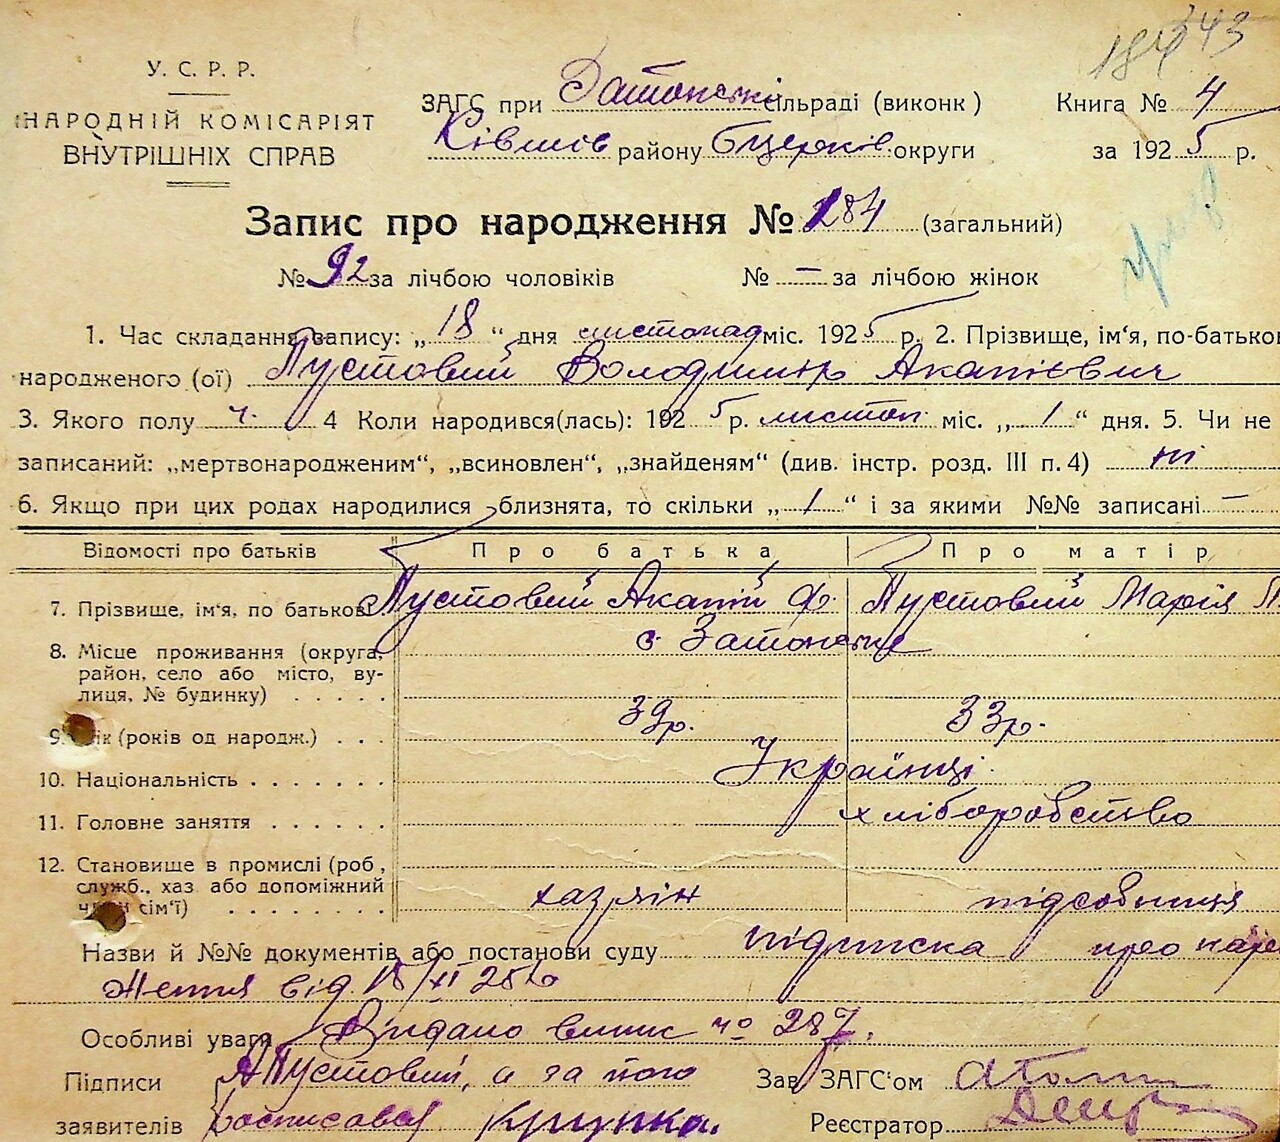 343
184
У. С. Р. Р.
НАРОДНІЙ КОМІСАРІЯТ
ВНУТРІШНІХ СПРАВ
ЗАГС при Затонські сільраді (виконк)
Книга № 4
Ківшів району Бцерків округи
за 1925 р.
Запис про народження № 184 (загальний)
№ 92 за лічбою чоловіків № — за лічбою жінок
1. Час складання запису: „18“ дня листопад міс. 1925 р. 2. Прізвище, ім‘я, по-батьков
народженого (ої) Пустовий Володимир Акапієвич
3. Якого полу ч. 4 Коли народився(лась): 1925 р. листоп. міс. „1“ дня. 5. Чи не
записаний: „мертвонародженим“, „всиновлен“, „знайденям“ (див. інстр. розд. III п. 4) ні
6. Якщо при цих родах народилися близнята, то скільки „1“ і за якими №№ записані —
Відомості про батьків Про батька Про матір
7. Прізвище, ім‘я, по батькові Пустовий Акапій Ф. Пустовий Марія П
8. Місце проживання (округа, с. Затонське
район, село або місто, ву-
лиця, № будинку)
9. Вік (років од народж.) 39р. 33р.
10. Національність Українці
11. Головне заняття хліборобство
12. Становище в промислі (роб.,
служб., хаз або допоміжний хазяїн підсобниця
член сім‘ї)
Назви й №№ документів або постанови суду підписка про наро
ження від 18/XI 25 р
Особливі уваги Видано випис по 287.
Підписи А Пустовий, а за його Зав. ЗАГС‘ом
заявителів росписався Крупка. Реєстратор